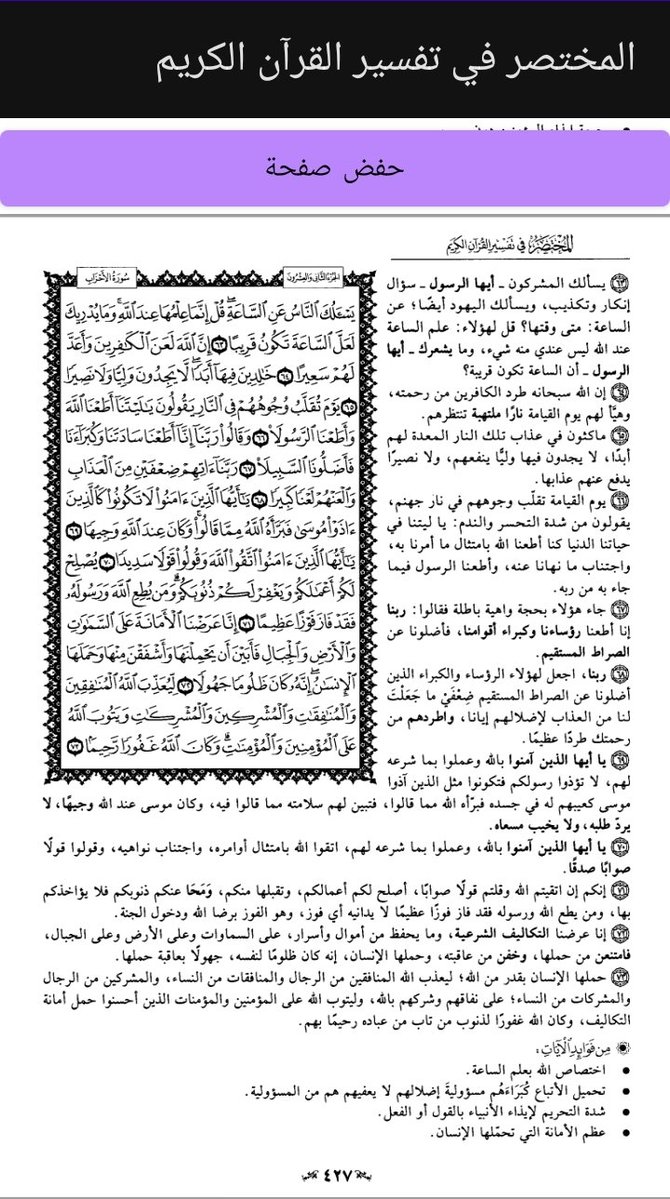 المختصر في تفسير القرآن الكريم
حفض صفحة
المختصر في تفسير القرآن الكريم
الجزء الثاني والعشرون
سورة الأحزاب
يَسْـَٔلُكَ ٱلنَّاسُ عَنِ ٱلسَّاعَةِۖ قُلْ إِنَّمَا عِلْمُهَا عِندَ ٱللَّهِۚ وَمَا يُدْرِيكَ
لَعَلَّ ٱلسَّاعَةَ تَكُونُ قَرِيبًا ٦٣ إِنَّ ٱللَّهَ لَعَنَ ٱلْكَٰفِرِينَ وَأَعَدَّ
لَهُمْ سَعِيرًا ٦٤ خَٰلِدِينَ فِيهَآ أَبَدًاۖ لَّا يَجِدُونَ وَلِيًّا وَلَا نَصِيرًا
٦٥ يَوْمَ تُقَلَّبُ وُجُوهُهُمْ فِي ٱلنَّارِ يَقُولُونَ يَٰلَيْتَنَآ أَطَعْنَا ٱللَّهَ
وَأَطَعْنَا ٱلرَّسُولَا۠ ٦٦ وَقَالُوا۟ رَبَّنَآ إِنَّآ أَطَعْنَا سَادَتَنَا وَكُبَرَآءَنَا
فَأَضَلُّونَا ٱلسَّبِيلَا۠ ٦٧ رَبَّنَآ ءَاتِهِمْ ضِعْفَيْنِ مِنَ ٱلْعَذَابِ
وَٱلْعَنْهُمْ لَعْنًا كَبِيرًا ٦٨ يَٰٓأَيُّهَا ٱلَّذِينَ ءَامَنُوا۟ لَا تَكُونُوا۟ كَٱلَّذِينَ
ءَاذَوْا۟ مُوسَىٰ فَبَرَّأَهُ ٱللَّهُ مِمَّا قَالُوا۟ۚ وَكَانَ عِندَ ٱللَّهِ وَجِيهًا ٦٩
يَٰٓأَيُّهَا ٱلَّذِينَ ءَامَنُوا۟ ٱتَّقُوا۟ ٱللَّهَ وَقُولُوا۟ قَوْلًا سَدِيدًا ٧٠ يُصْلِحْ
لَكُمْ أَعْمَٰلَكُمْ وَيَغْفِرْ لَكُمْ ذُنُوبَكُمْۗ وَمَن يُطِعِ ٱللَّهَ وَرَسُولَهُۥ
فَقَدْ فَازَ فَوْزًا عَظِيمًا ٧١ إِنَّا عَرَضْنَا ٱلْأَمَانَةَ عَلَى ٱلسَّمَٰوَٰتِ
وَٱلْأَرْضِ وَٱلْجِبَالِ فَأَبَيْنَ أَن يَحْمِلْنَهَا وَأَشْفَقْنَ مِنْهَا وَحَمَلَهَا
ٱلْإِنسَٰنُۖ إِنَّهُۥ كَانَ ظَلُومًا جَهُولًا ٧٢ لِّيُعَذِّبَ ٱللَّهُ ٱلْمُنَٰفِقِينَ
وَٱلْمُنَٰفِقَٰتِ وَٱلْمُشْرِكِينَ وَٱلْمُشْرِكَٰتِ وَيَتُوبَ ٱللَّهُ
عَلَى ٱلْمُؤْمِنِينَ وَٱلْمُؤْمِنَٰتِۗ وَكَانَ ٱللَّهُ غَفُورًا رَّحِيمًا ٧٣
٦٣ يسألك المشركون ـ أيها الرسول ـ سؤال
إنكار وتكذيب، ويسألك اليهود أيضًا؛ عن
الساعة: متى وقتها؟ قل لهؤلاء: علم الساعة
عند الله ليس عندي منه شيء، وما يشعرك ـ أيها
الرسول ـ أن الساعة تكون قريبة؟
٦٤ إن الله سبحانه طرد الكافرين من رحمته،
وهيَّأ لهم يوم القيامة نارًا ملتهبة تنتظرهم.
٦٥ ماكثون في عذاب تلك النار المعدة لهم
أبدًا، لا يجدون فيها وليًّا ينفعهم، ولا نصيرًا
يدفع عنهم عذابها.
٦٦ يوم القيامة تقلّب وجوههم في نار جهنم،
يقولون من شدة التحسر والندم: يا ليتنا في
حياتنا الدنيا كنا أطعنا الله بامتثال ما أمرنا به،
واجتناب ما نهانا عنه، وأطعنا الرسول فيما
جاء به من ربه.
٦٧ جاء هؤلاء بحجة واهية باطلة فقالوا: ربنا
إنا أطعنا رؤساءنا وكبراء أقوامنا، فأضلونا عن
الصراط المستقيم.
٦٨ ربنا، اجعل لهؤلاء الرؤساء والكبراء الذين
أضلونا عن الصراط المستقيم ضِعْفَيْ ما جَعَلْتَ
لنا من العذاب لإضلالهم إيانا، واطردهم من
رحمتك طردًا عظيمًا.
٦٩ يا أيها الذين آمنوا بالله وعملوا بما شرعه
لهم، لا تؤذوا رسولكم فتكونوا مثل الذين آذوا
موسى كعيبهم له في جسده فبرّأه الله مما قالوا، فتبين لهم سلامته مما قالوا فيه، وكان موسى عند الله وجيهًا، لا
يردّ طلبه، ولا يخيب مسعاه.
٧٠ يا أيها الذين آمنوا بالله، وعملوا بما شرعه لهم، اتقوا الله بامتثال أوامره، واجتناب نواهيه، وقولوا قولًا
صوابًا صدقًا.
٧١ إنكم إن اتقيتم الله وقلتم قولًا صوابًا، أصلح لكم أعمالكم، وتقبلها منكم، وَمَحَا عنكم ذنوبكم فلا يؤاخذكم
بها، ومن يطع الله ورسوله فقد فاز فوزًا عظيمًا لا يدانيه أي فوز، وهو الفوز برضا الله ودخول الجنة.
٧٢ إنا عرضنا التكاليف الشرعية، وما يحفظ من أموال وأسرار، على السماوات وعلى الأرض وعلى الجبال،
فامتنعن من حملها، وخفن من عاقبته، وحملها الإنسان، إنه كان ظلومًا لنفسه، جهولًا بعاقبة حملها.
٧٣ حملها الإنسان بقدر من الله؛ ليعذب الله المنافقين من الرجال والمنافقات من النساء، والمشركين من الرجال
والمشركات من النساء؛ على نفاقهم وشركهم بالله، وليتوب الله على المؤمنين والمؤمنات الذين أحسنوا حمل أمانة
التكاليف، وكان الله غفورًا لذنوب من تاب من عباده رحيمًا بهم.
من فوائد الآيات:
• اختصاص الله بعلم الساعة.
• تحميل الأتباع كُبَرَاءَهُم مسؤوليةَ إضلالهم لا يعفيهم هم من المسؤولية.
• شدة التحريم لإيذاء الأنبياء بالقول أو الفعل.
• عظم الأمانة التي تحمّلها الإنسان.
٤٢٧